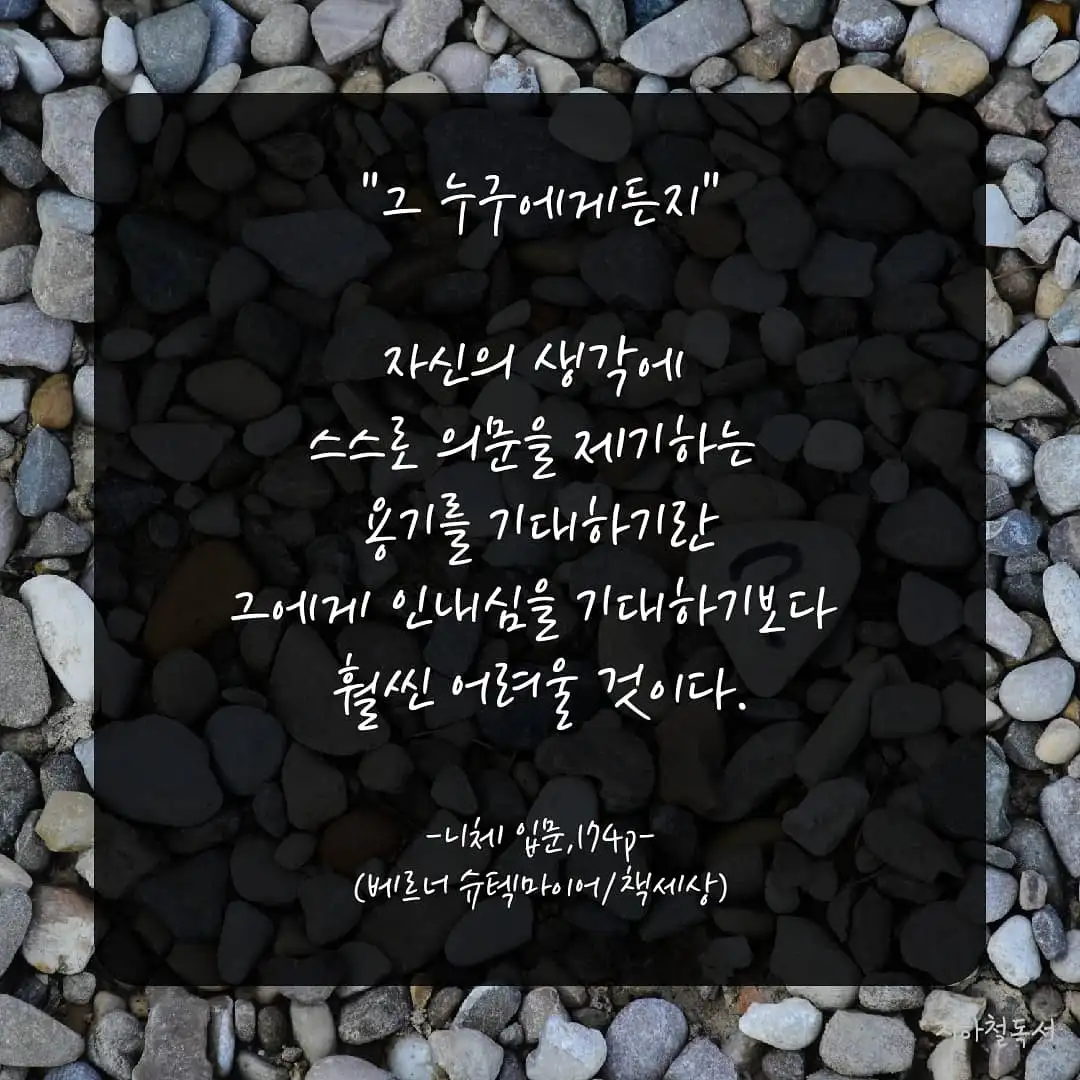 "그 누구에게든지"
자신의 생각에
스스로 의문을 제기하는
용기를 기대하기란
그에게 인내심을 기대하기보다
훨씬 어려울 것이다.
-니체 입문,174p-
(베르너 슈텍마이어/책세상)
?